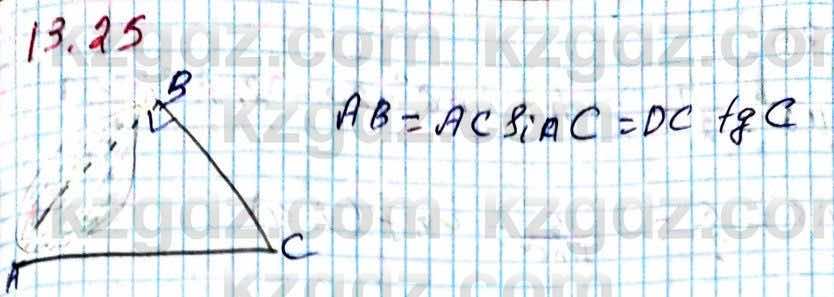 13.25
B
AB = AC sin C = DC tg C
A
C
kzgdz.com
kzgdz.com
kzgdz.com
kzgdz.com
kzgdz.com
kzgdz.com